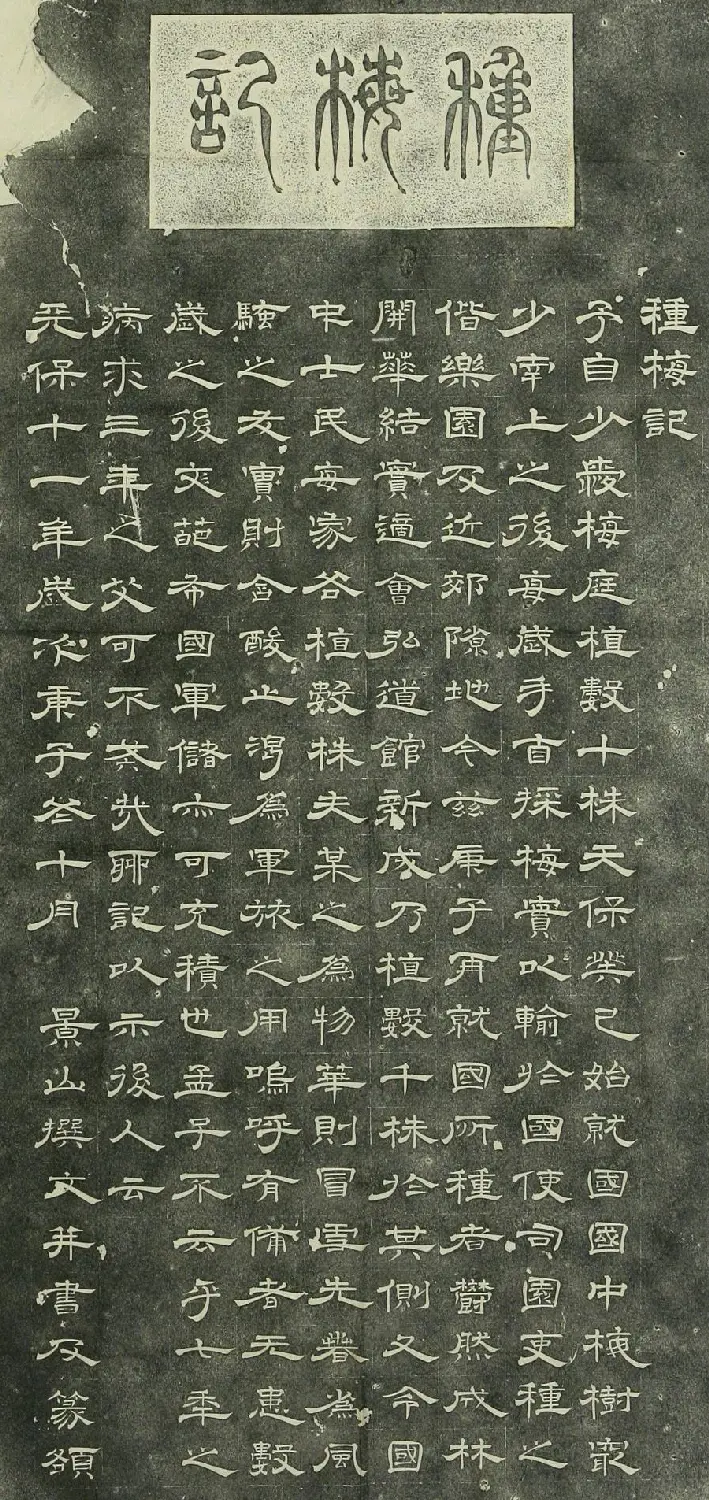 種梅記
種梅記
予自少愛梅庭植數十株天保癸巳始就國國中梅樹最
少南上之後每歲手自採梅實以輸於國使司園吏種之
偕樂園及近郊隙地今茲庚子再就國所種者鬱然成林
開華結實適會弘道館新成乃植數千株於其側又令國
中士民每家各植數株夫某之爲物華則冒雪先春爲風
騷之友實則含酸止渴爲軍旅之用嗚呼有備者无患數
歲之後文葩布國軍儲亦可充積也孟子不云乎七年之
病求三年之艾可不戒哉聊記以示後人云
天保十一年歲次庚子冬十月　景山撰文并書及篆額